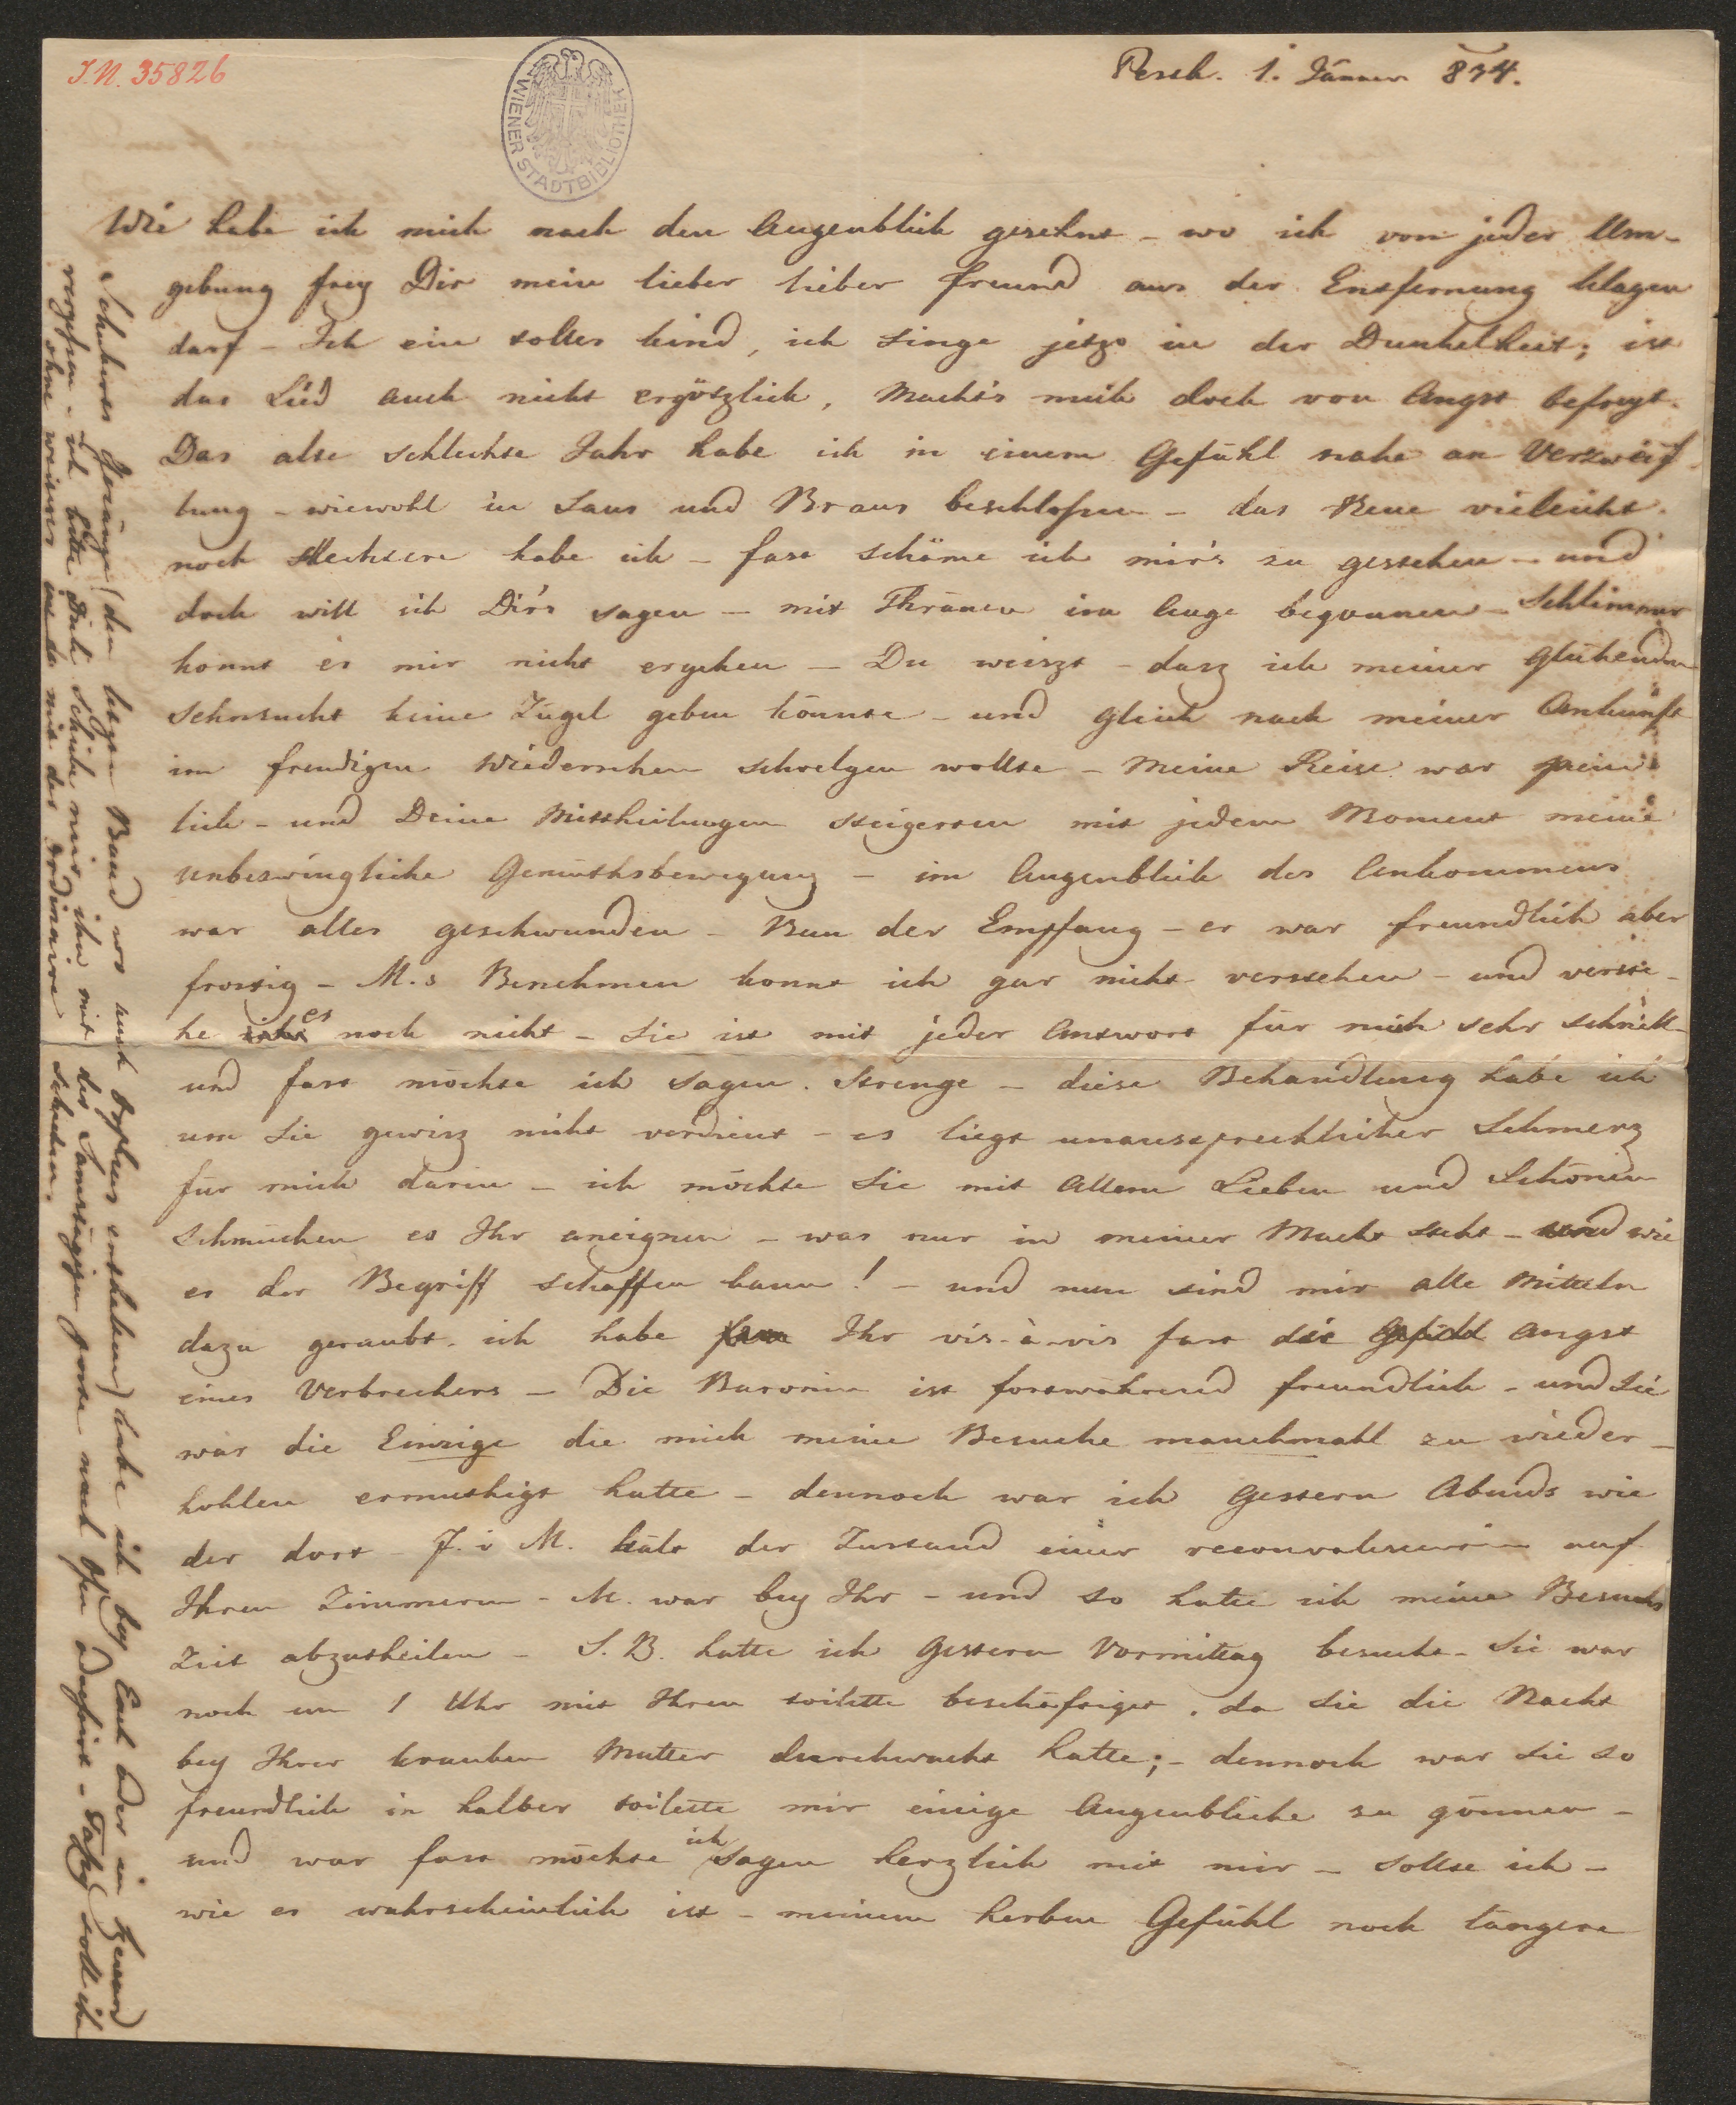 I.N. 35826
WIENER STADTBIBLIOTHEK
Pesth. 1. Jänner 834.
Wie habe ich mich nach den Augenblick gesehnt – wo ich von jeder Um-
gebung frey Dir mein lieber lieber Freund aus der Entfernung klagen
darf – Ich ein tolles Kind, ich singe jetzo in der Dunkelheit; ist
das Lied auch nicht ergötzlich, macht's mich doch von Angst befreyt.
Das alte schlechte Jahr habe ich in einem Gefühl nahe an Verzweif-
lung – wiewohl in Saus und Braus beschloßen – das Neue vieleicht
noch schlechtere habe ich – fast schäme ich mir's zu gestehen – und
doch will ich Dir's sagen – mit Thränen im Auge begonnen – Schlimmer
konnt es mir nicht ergehen – Du weiszt – dasz ich meiner glühenden
Sehnsucht keine Zügel geben könnte – und gleich nach meiner Ankunft
im freudigen Wiedersehen schwelgen wollte – meine Reise war pein
lich – und Deine Mittheilungen steigerten mit jedem Moment meine
unbezwingliche Gemüthsbewegung – im Augenblick des Ankommens
war alles geschwunden – Nun der Empfang – er war freundlich aber
frostig – M.s Benehmen konnt ich gar nicht verstehen – und verste-
he es noch nicht – Sie ist mit jeder Antwort für mich sehr schnell –
und fast möchte ich sagen. Strenge – diese Behandlung habe ich
um Sie gewisz nicht verdient – es liegt unaussprechlicher Schmerz
für mich darin – ich möchte Sie mit Allem Lieben und Schönen
schmücken es Ihr aneignen – was nur in meiner Macht steht – und wie
es der Begriff schaffen kann! – und nun sind mir alle Mitteln
dazu geraubt. ich habe Ihr vis-à-vis fast die Angst
eines Verbrechers – Die Baronin ist fortwährend freundlich – und Sie
war die Einzige die mich meine Besuche manchmahl zu wieder-
hohlen ermuthigt hatte – dennoch war ich gestern Abends wie
der dort M. der Zustand einer auf
Ihren Zimmern – M. war bey Ihr – und so hatte ich meine Besuchs
Zeit abzutheilen – S. B. hatte ich gestern Vormittag besucht – Sie war
noch um 1 Uhr mit Ihren toilette beschäftiget, da Sie die Nacht
bey Ihrer kranken Mutter durchwacht hatte; – dennoch war Sie so
freundlich in halber toilette mir einige Augenblicke zu gönnen –
und war fast möchte ich sagen herzlich mit mir – sollte ich –
wie es wahrscheinlich ist – meinem herben Gefühl noch längere
Schuberts Gesänge (den letzen Band wo auch Orpheus enthalten) habe ich bey Euch oder in
vergeßen – ich bitte Dich schicke mir ihn mit der Samstägigen post nach Ofen adressirt – soll ihn
ohne weiteres mit der ordinaire schicken.